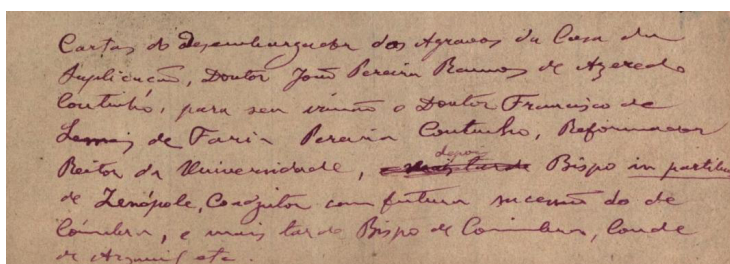 Cartas do Desembargador dos Agravos da Casa da
Suplicação, Doutor João Pereira Ramos de Azeredo
Coutinho, para seu irmão o Doutor Francisco de
Lemos de Faria Pereira Coutinho, Reformador
Reitor da Universidade, e mais tarde depois Bispo in partibus
de Zenópole, Coadjutor com futura sucessão do de
Coimbra, e mais tarde Bispo de Coimbra, Conde
de Arganil etc.